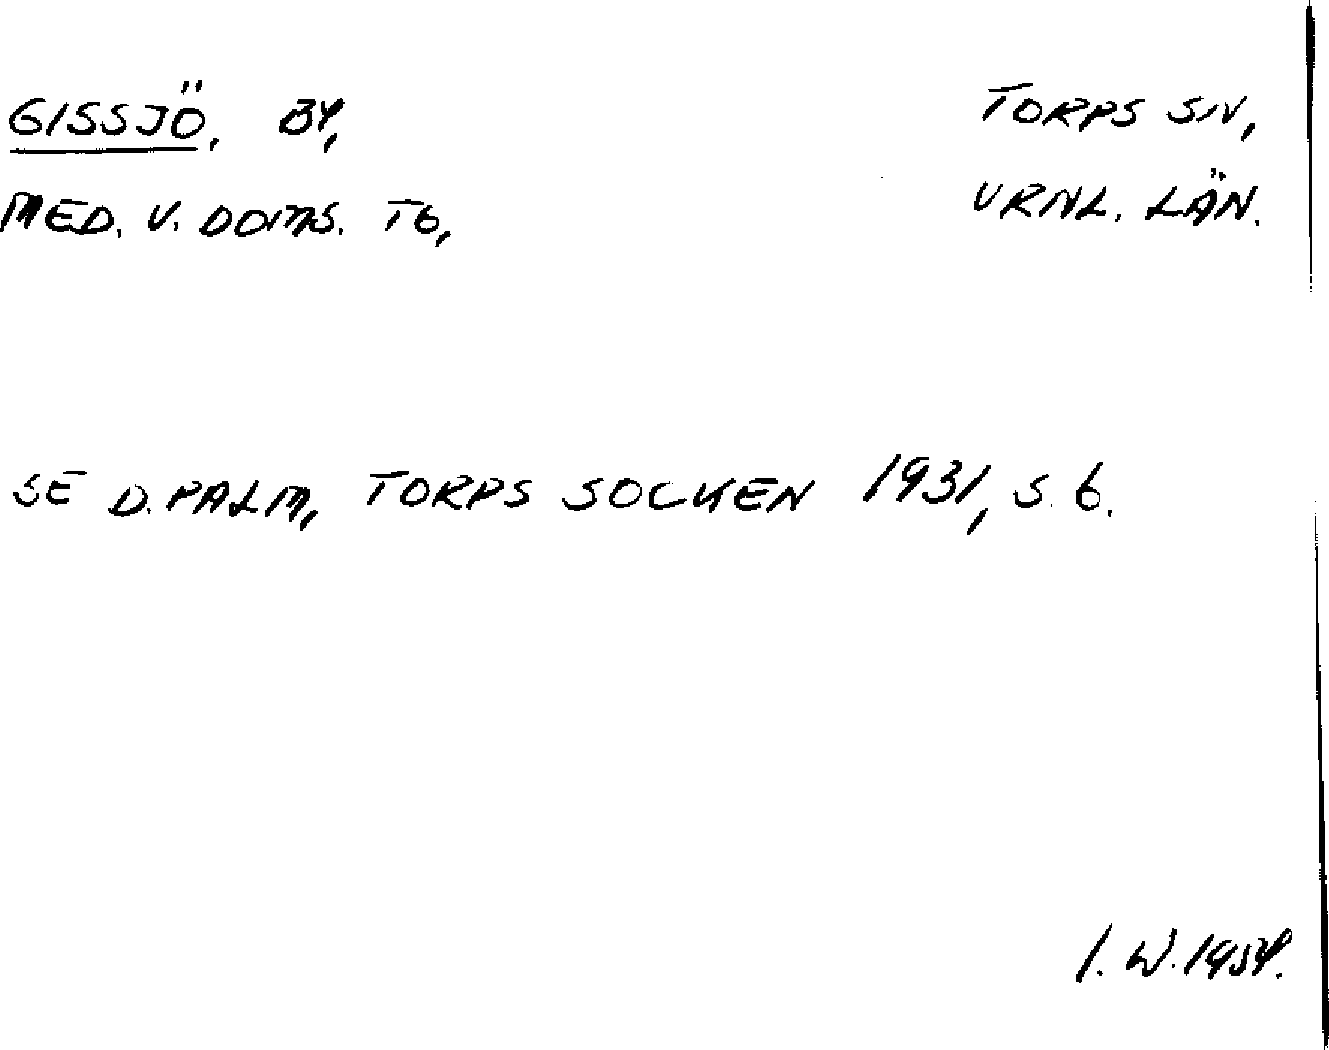 GISSJÖ, BY,
TORPS SN,
MED. V. DOMS. TG,
VRNL. LÄN.
SE D. PALM, TORPS SOCKEN 1931, S. 6.
I. W. 1954.